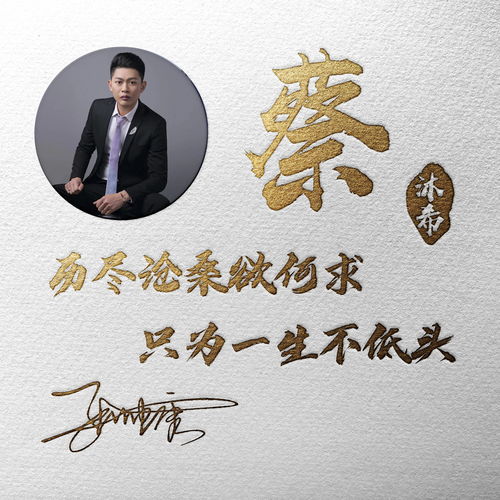 蔡
沐希
历尽沧桑欲何求
只为一生不低头